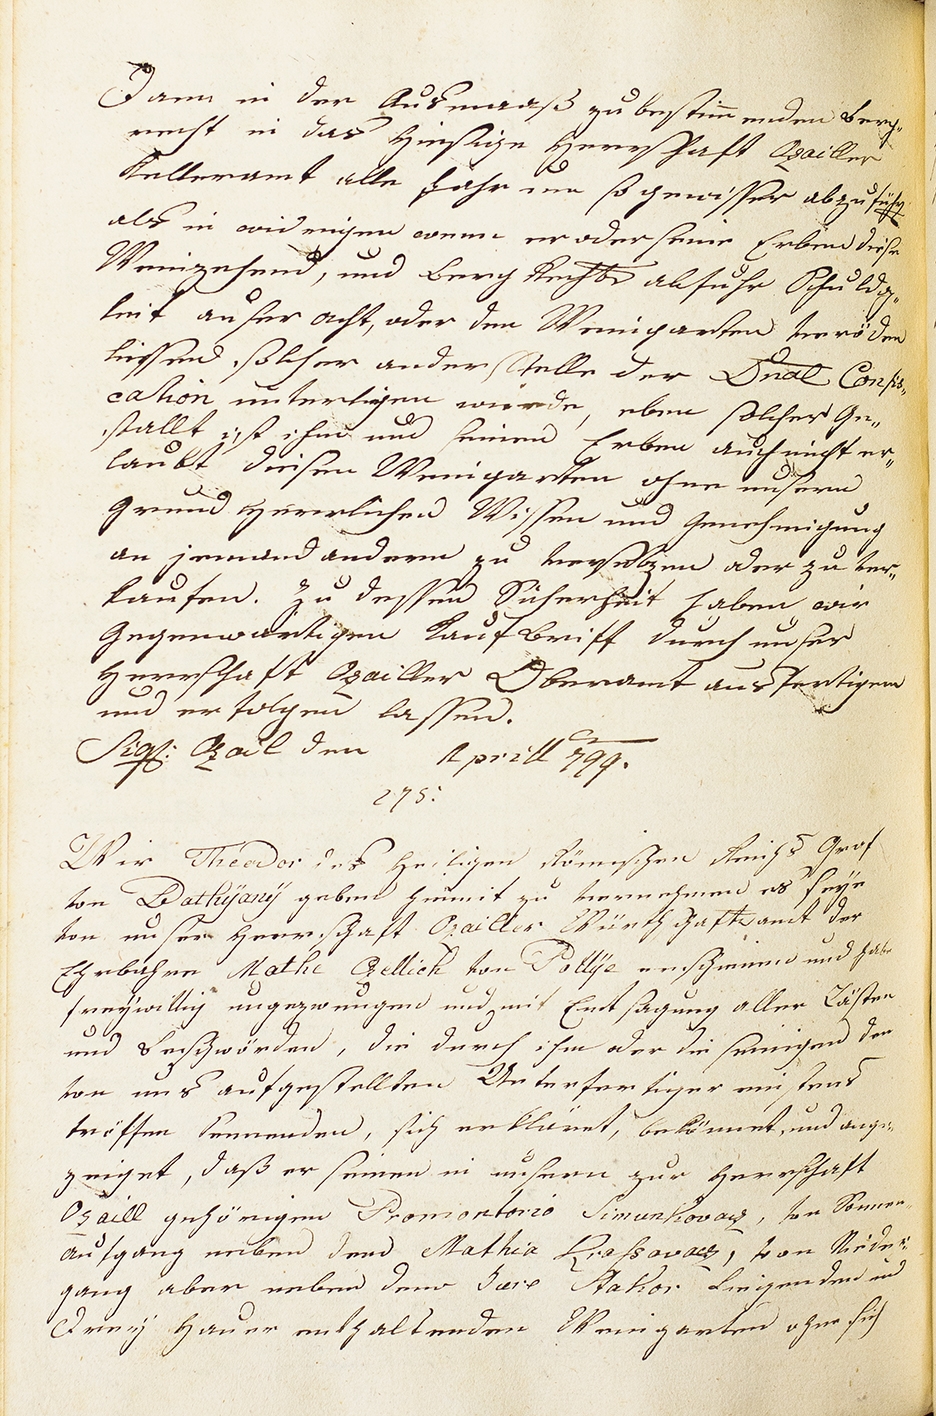 Dann in der Ausmaaß zu bestimmenden Berg„
recht in das hiesige Herrschaft Ozailler
Kelleramt alle Jahr um so gewisser abzuführen
als in widrigen wenn er oder seine Erben diese
Weinzehend, und Berg Rechts abfuhr Schuldig„
keit ausser acht, oder den Weingarten veröden
liessen solcher anderstelle der Dnal Confis„
cation unterliegen würde, eben solcher Ge„
stallt ist ihm und seinen Erben auch nicht er„
laubt diesen Weingarten ohne unsern
Grund Herrlichen Wissen und Genehmigung
an jemand andern zu versetzen oder zu ver„
kaufen. Zu dessen Sicherheit haben wir
Gegenwärtigen Kauf Brieff durch unser
Herrschaft Ozailler Oberamt ausfertigen
und erfolgen lassen.
Sigl: Ozail den Aprill 799.
275:
Wir Theodor des Heiligen Römischen Reichs Graf
von Bathÿanÿ geben hiemit zu vernehmen es seÿe
von unser Herrschaft Ozailler Würthschaftsamt der
Ehrbahre Mathe Zellich von Pollÿe erschienen und habe
freywillig ungezwungen und mit Entsagung aller Lästen
und Beschwörden, die durch ihm oder die seinigen der
von uns aufgestellten Unterfertiger einstens
tröffen kennenden, sich erkläret, bekönnet, und ange„
zeiget, daß er seinen in unsern zur Herrschaft
Ozaill gehörigen Promontorio Simunkovacz, von Sonnen„
aufgang neben dem Mathia Krassovacz, von Nieder„
gang aber neben dem Jure Stakor liegenden und
Dreÿ Hauer enthaltenden Weingarten ohne sich